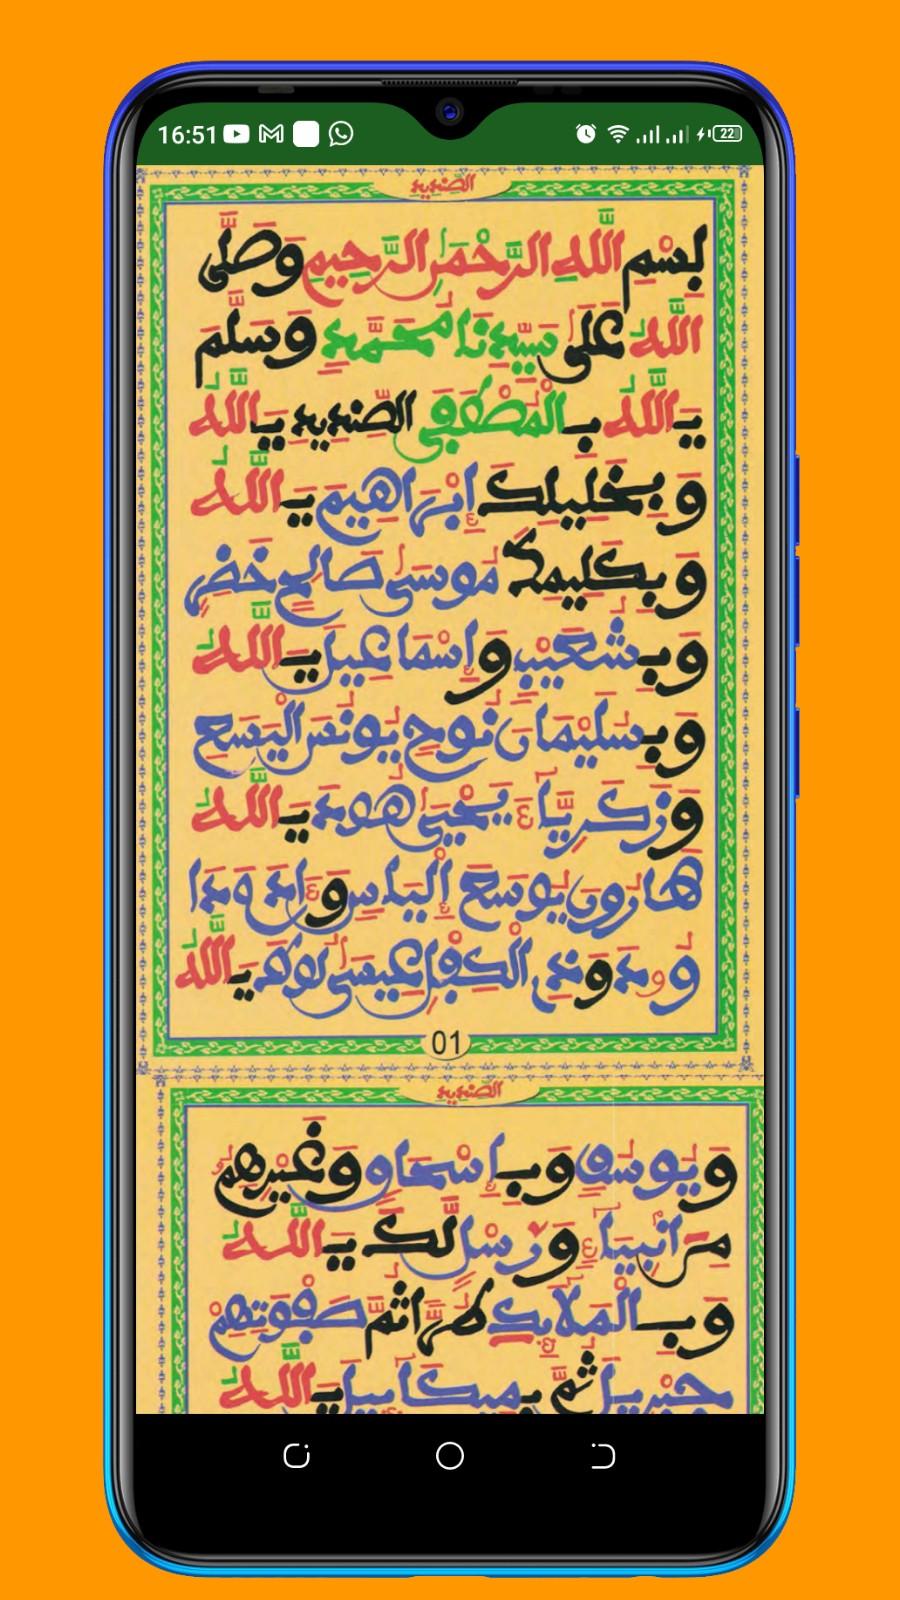 16:51
22
الصنديد
بِسْمِ اللَّهِ الرَّحْمَٰنِ الرَّحِيمِ وَصَلَّى
اللَّهُ عَلَى سَيِّدِنَا مُحَمَّدٍ وَسَلَّمَ
يَاللَّهُ بِالْمُصْطَفَى الصِّنْدِيدِ يَاللَّهُ
وَبِخَلِيلِكَ إِبْرَاهِيمَ يَاللَّهُ
وَبِكَلِيمِكَ مُوسَى صَالِحٍ خَضِرٍ
وَبِشُعَيْبٍ وَإِسْمَاعِيلَ يَاللَّهُ
وَبِسُلَيْمَانَ نُوحٍ يُونُسَ الْيَسَعِ
وَزَكَرِيَّاءَ يَحْيَى هُودٍ يَاللَّهُ
هَارُونَ يُوشَعَ إِلْيَاسٍ وَءَادَمَ
دَاوُودَ وَذِي الْكِفْلِ عِيسَى لُوطٍ يَاللَّهُ
01
الصنديد
وَيُوسُفٍ وَبِإِسْحَاقٍ وَغَيْرِهِمُ
مِنْ أَنْبِيَاءَ وَرُسْلٍ لَكَ يَاللَّهُ
وَبِالْمَلَائِكِ طُرًّا ثُمَّ صَفْوَتِهِمْ
جِبْرِيلَ ثُمَّ بِمِيكَائِيلَ يَاللَّهُ